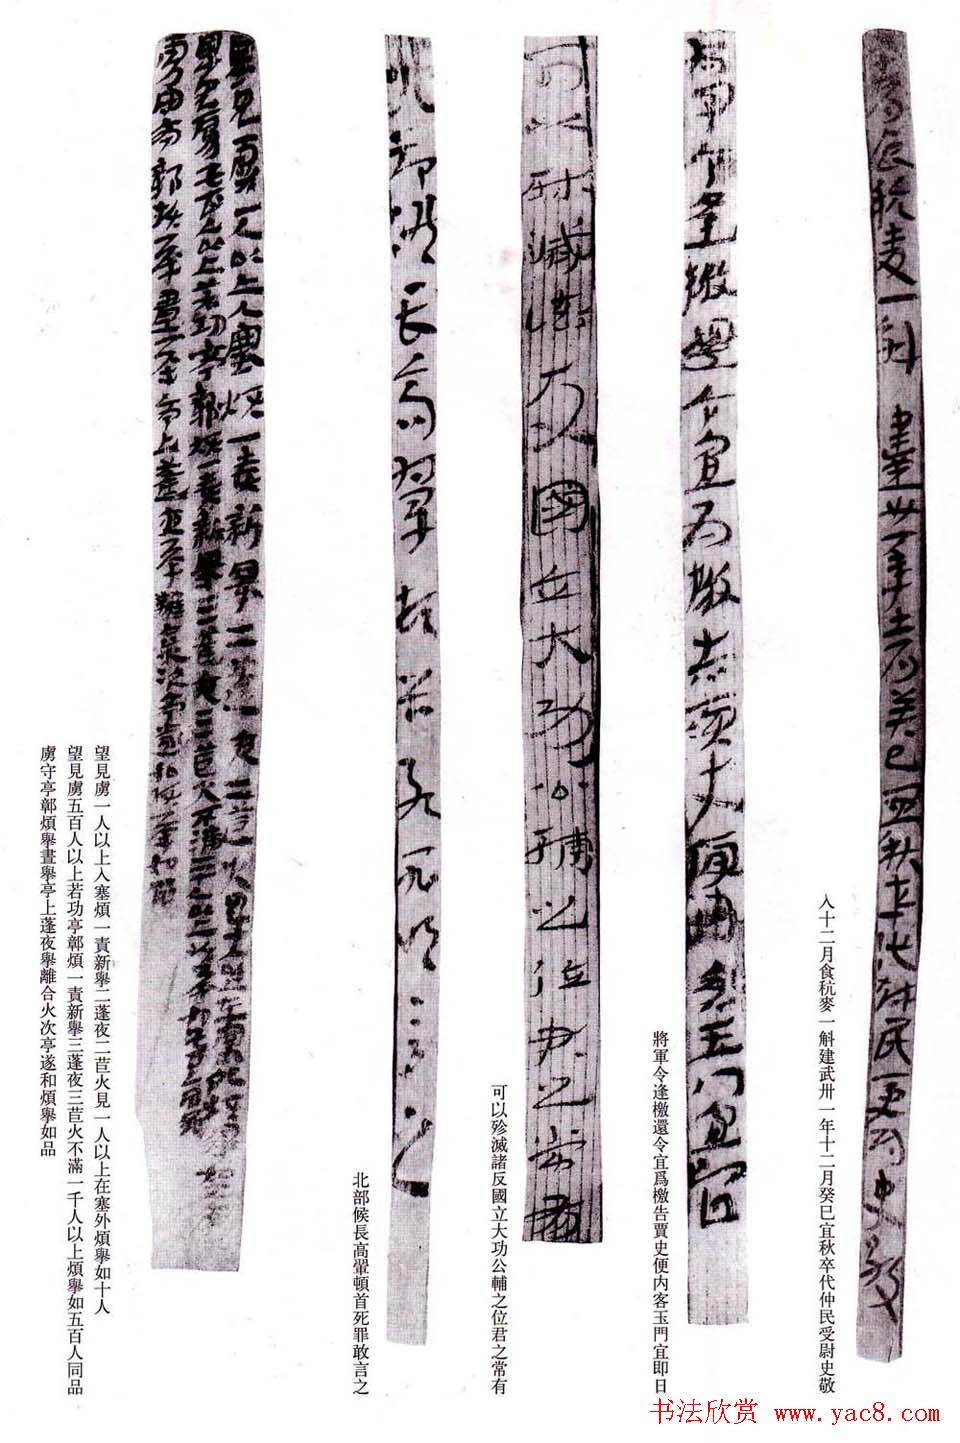 入十二月食秔麥一斛建武卅一年十二月癸巳宜秋卒代仲民受尉史敬
將軍令逢檄還令宜爲檄告賈史便内客玉門宜即日
可以殄滅諸反國立大功公輔之位君之常有
北部候長高暈頓首死罪敢言之
望見虜一人以上入塞煩一責新舉二蓬夜二苣火見一人以上在塞外煩舉如十人
望見虜五百人以上若功亭鄣煩一責新舉三蓬夜三苣火不滿一千人以上煩舉如五百人同品
虜守亭鄣煩舉晝舉亭上蓬夜舉離合火次亭遂和煩舉如品
书法欣赏 www.yac8.com